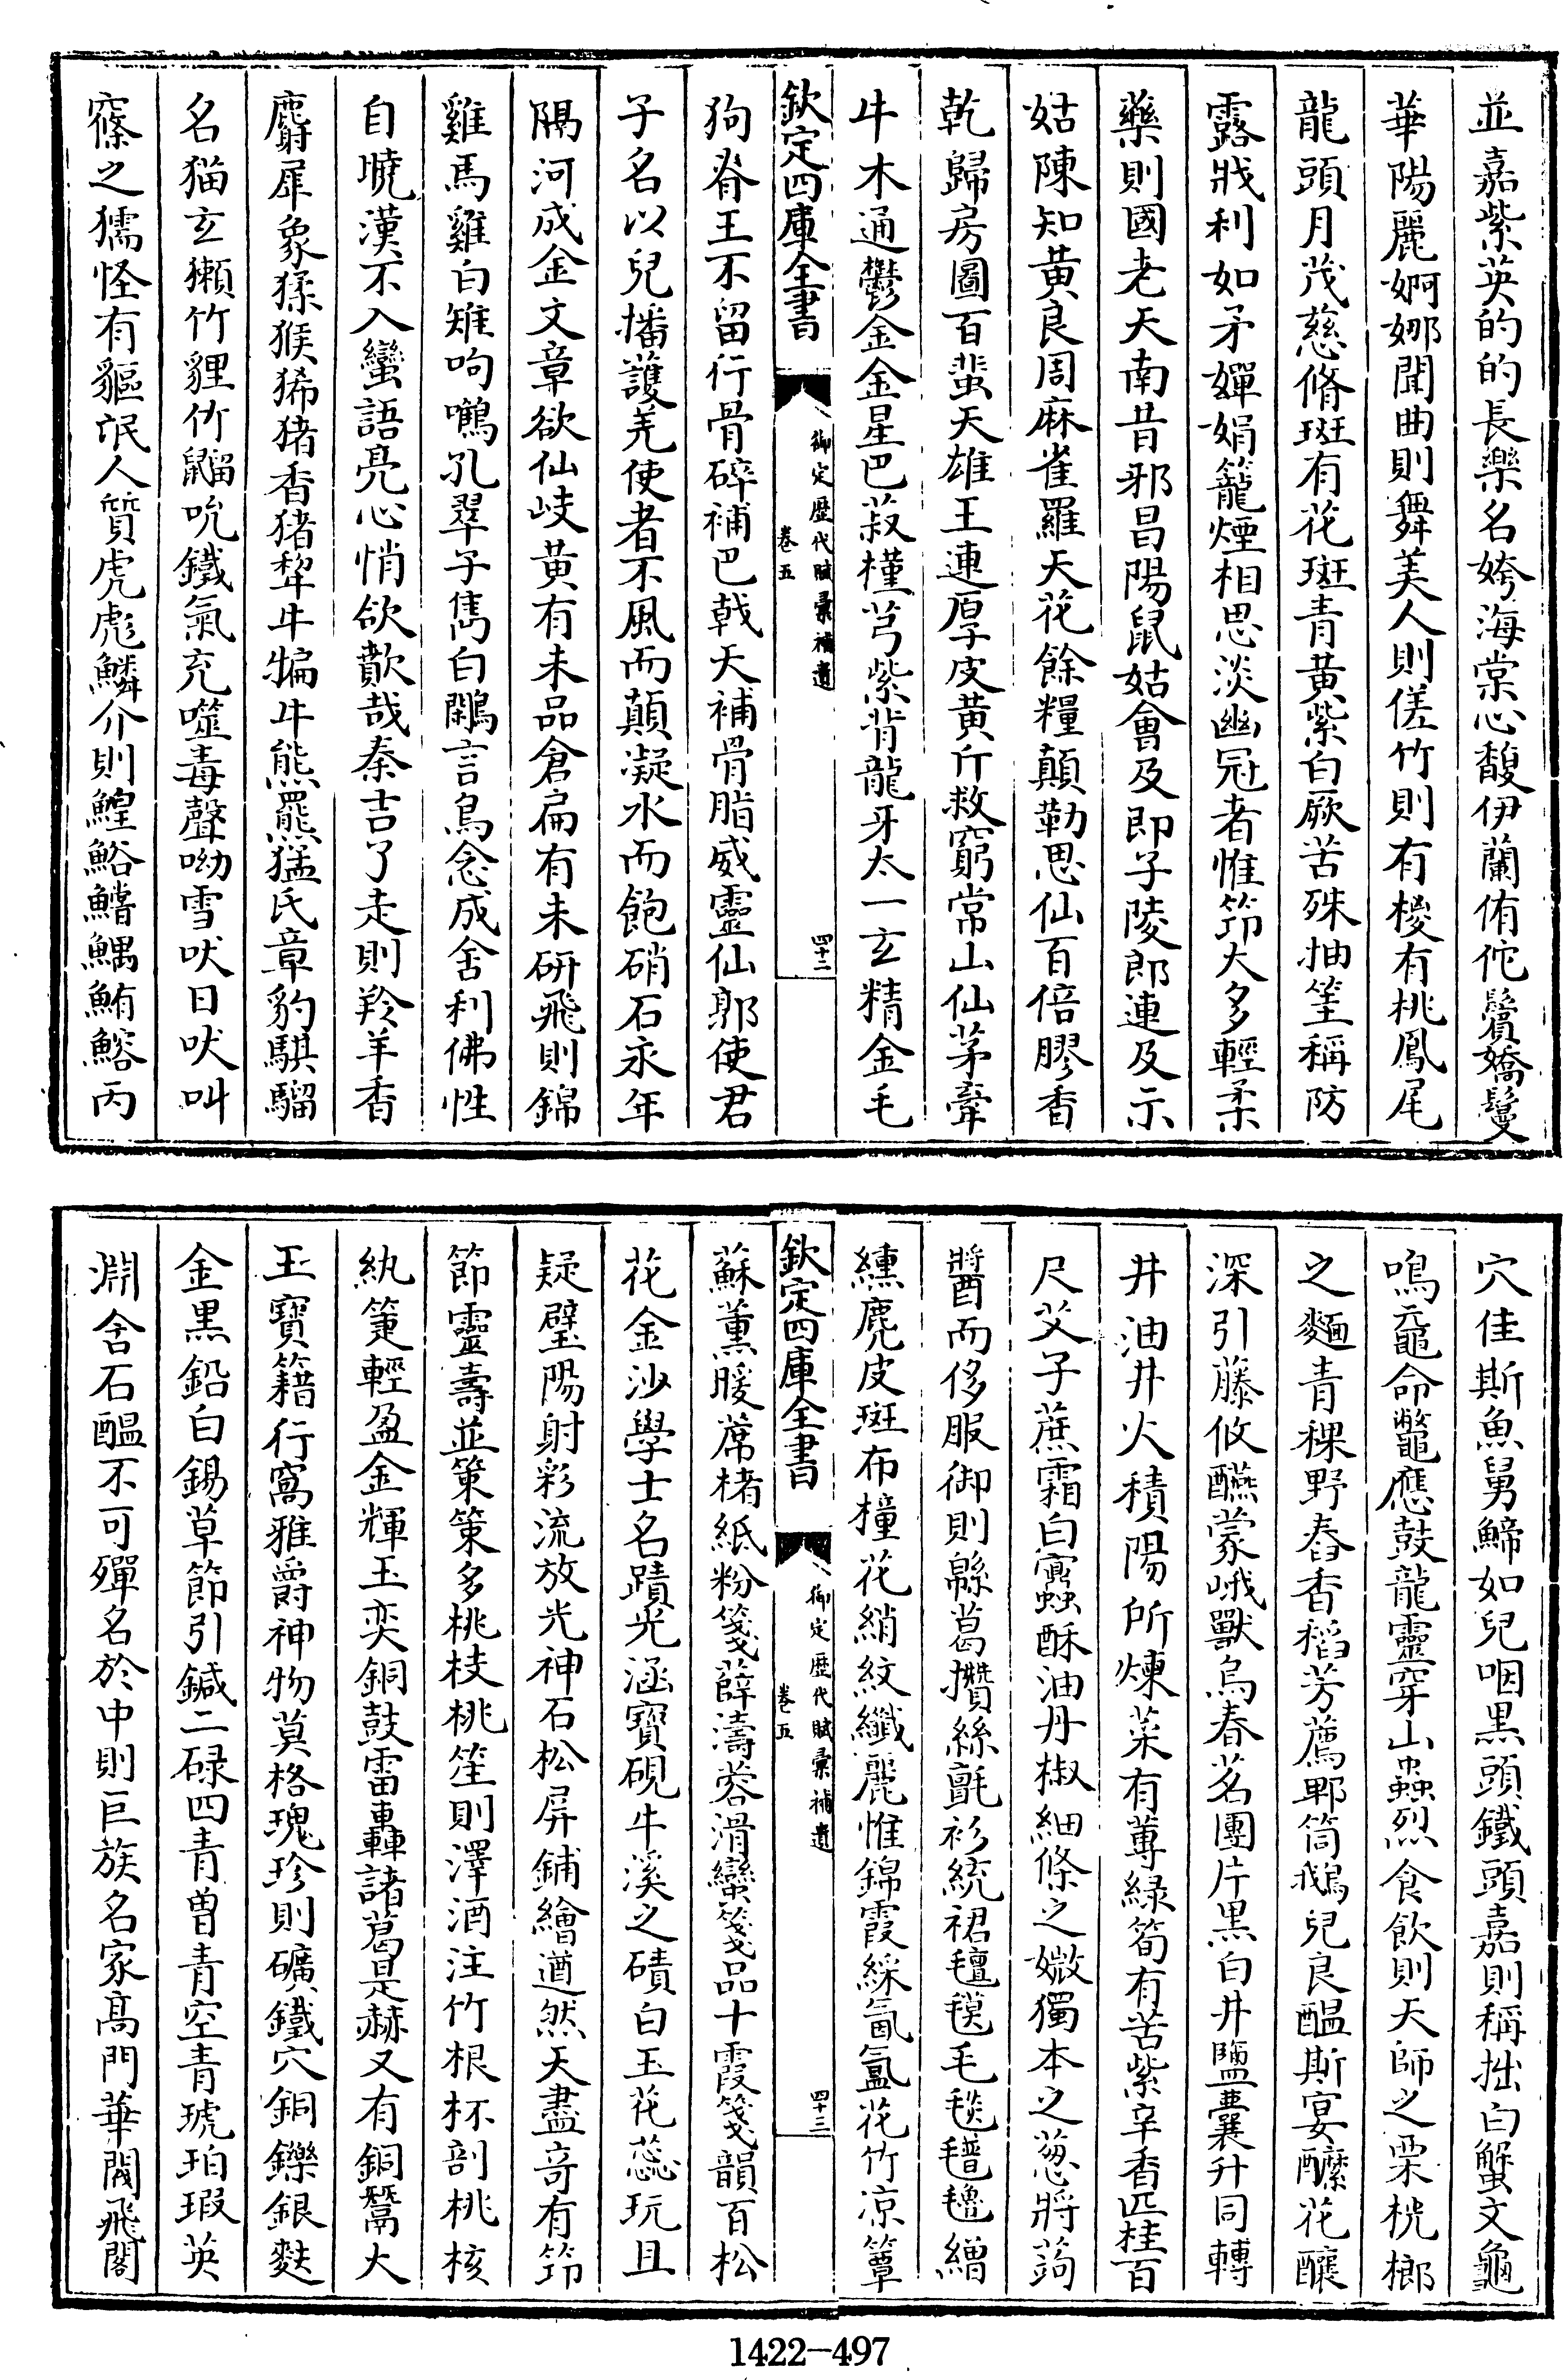 並嘉紫英的的長樂名姱海棠心馥伊蘭侑佗鬢嬌鬘
華陽麗婀娜聞曲則舞美人則傞竹則有椶有桃鳳尾
龍頭月茂慈脩斑有花斑青黃紫白厥苦殊抽筀稱防
露戕利如矛嬋娟籠煙相思淡幽冠者惟筇大多輕柔
藥則國老天南昔邪昌陽鼠姑會及即子陵郎連及示
姑陳知黃良周麻雀羅天花餘糧顛勒思仙百倍膠香
乾歸房圖百蜚天雄王連厚皮黃斤救窮常山仙茅牽
牛木通鬱金金星巴菽槿芎紫背龍牙太一玄精金毛
欽定四庫全書
御定歷代賦彙補遺
卷五
四十二
狗脊王不留行骨碎補巴戟天補骨脂威靈仙郭使君
子名以兒播護羌使者不風而顛凝水而飽硝石永年
隅河成金文章欲仙岐黃有未品倉扁有未研飛則錦
雞馬雞白雉呴鸍孔翠子雋白鷴言鳥念成舍利佛性
自曉漢不入蠻語亮心悄欲歎哉秦吉了走則羚羊香
麝犀象猱猴狶猪香猪犂牛犏牛熊羆猛氏章豹騏騮
名猫玄獺竹貍竹䶉吮鐵氣充噬毒聲呦雪吠日吠叫
窱之獳怪有貙氓人質虎彪鱗介則鰉鮥鰽鰅鮪鰫丙
穴佳斯魚舅鰟如兒咽黑頭鐵頭嘉則稱拙白蟹文龜
鳴黿命鼈應鼓龍靈穿山蟲烈食飲則天師之栗桄榔
之麵青稞野舂香稻芳薦郫筒鵝兒良醖斯宴醿花釀
深引藤攸醼蒙峨獸烏春茗團片黑白井鹽囊升同轉
井油井火積陽所煉菜有蓴綠筍有苦紫辛香匹桂百
尺艾子蔗霜白䘉酥油丹椒細條之媺獨本之葱將蒟
醬而侈服御則緜葛攢絲氈衫統裙氊氁毛毯氆氌繒
纁麂皮斑布橦花綃紋纖麗惟錦霞綵氤氳花竹凉簟
欽定四庫全書
御定歷代賦彙補遺
卷五
四十三
蘇薰暖蓆楮紙粉箋薛濤滎滑蠻箋品十霞箋韻百松
花金沙學士名蹟光涵寶硯牛溪之磧白玉花蕊玩且
疑璧陽射彩流放光神石松屏鋪繪遒然天盡奇有筇
節靈壽並策策多桃枝桃笙則澤酒注竹根杯剖桃核
紈箑輕盈金輝玉奕銅鼓雷轟諸葛是赫又有銅鬵大
玉寶籍行窩雅爵神物莫格瑰珍則礦鐵穴銅鑠銀麩
金黑鉛白錫草節引鍼二碌四青曾青空青琥珀瑕英
淵含石醖不可殫名於中則巨族名家高門華閥飛閣
1422-497